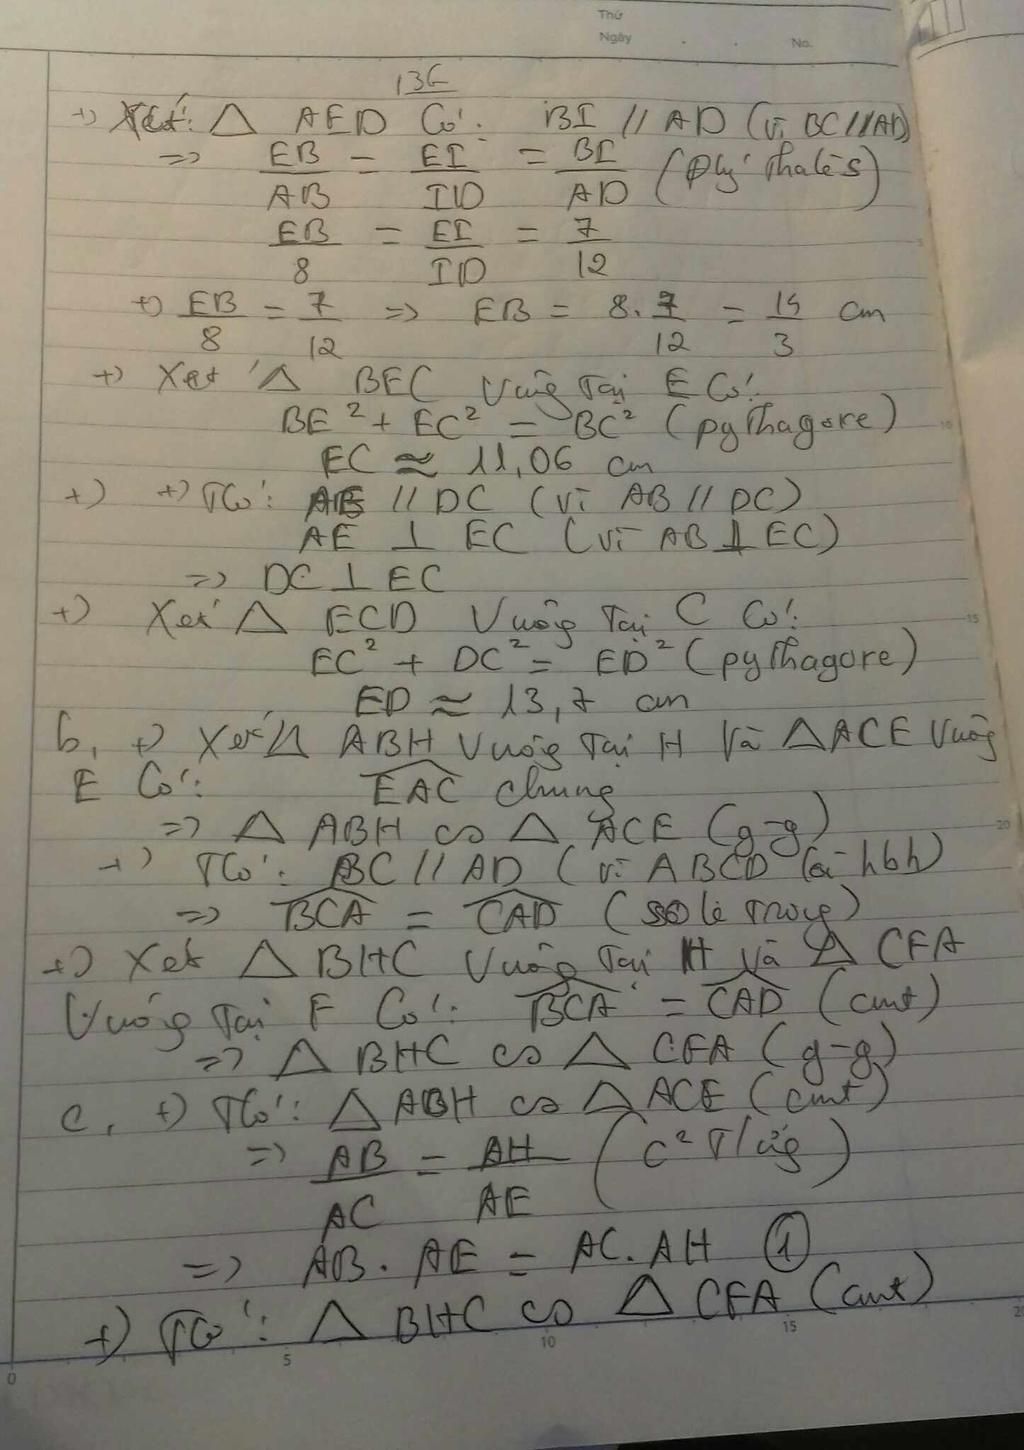 Thứ
Ngày . . No.
136
+) Xét: △ AED Có: BI // AD (vì BC // AD)
=> EB/AB = EI/ID = BI/AD (Đlý Thalès)
EB/8 = EI/ID = 7/12
+) EB/8 = 7/12 => EB = 8.7/12 = 14/3 cm
+) Xét △ BEC Vuông Tại E Có:
BE² + EC² = BC² (pythagore)
EC ≈ 11,06 cm
+) +) TCó: AE // DC (vì AB // DC)
AE ⊥ EC (vì AB ⊥ EC)
=> DC ⊥ EC
+) Xét △ ECD Vuông Tại C Có:
EC² + DC² = ED² (pythagore)
ED ≈ 13,7 cm
b, +) Xét △ ABH Vuông Tại H Và △ ACE Vuông
E Có: EAC chung
=> △ ABH ∽ △ ACE (g-g)
+) TCó: BC // AD (vì ABCD là hbh)
=> BCA = CAD (so le trong)
+) Xét △ BHC Vuông Tại H và △ CFA
Vuông Tại F Có: BCA = CAD (cmt)
=> △ BHC ∽ △ CFA (g-g)
c, +) TCó: △ ABH ∽ △ ACE (cmt)
=> AB/AC = AH/AE (C² T/ứg)
=> AB. AE = AC. AH ①
+) TCó: △ BHC ∽ △ CFA (cmt)
0 5 10 15 20